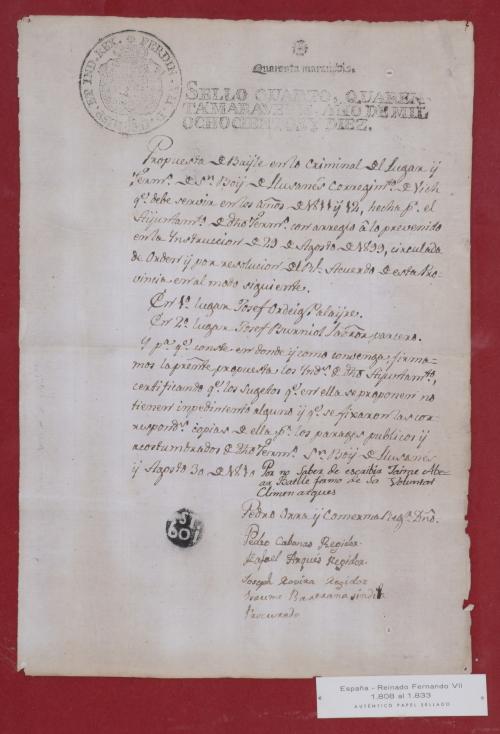 HISP. ET IND. REX. FERDIN. VII. D. G.
Quarenta maravedis.
SELLO QUARTO, QUAREN-
TA MARAVEDIS, AÑO DE MIL
OCHOCIENTOS Y DIEZ.
Propuesta de Bayle en lo Criminal del Lugar y
Term.º de Sn. Boÿ de Llusanés Corregim.to de Vich
q.e debe servir en los años de 1811 y 12, hecha p.r el
Aÿuntam.to de dho Term.º con arreglo â lo prevenido
en la Instruccion de 29 de Agosto de 1799, circulada
de Orden ÿ por resolucion del Rl. Acuerdo de esta Pro-
vincia en al modo siguiente.
En 1º lugar Josef Ordeig Palayre.
En 2º lugar Josef Burniol Labrador parcero.
Y p.a q.e conste en donde ÿ como convenga, firma-
mos la pres.nte propuesta los Ind.s de dho Aÿuntam.to,
certificando q.e los Sugetos q.e en ella se proponen no
tienen inpedimento alguno ÿ q.e se fixaron las cor-
respond.s copias de ella p.r los parages publicos ÿ
acostumbrados de dho Term.º Sn. Boÿ de Llusanes
ÿ Agosto 30 de 1810
Por no Saber de escribir Jaime
Batlle firmo de su Voluntat
Climen arques
Pedro ÿ Comerma Reg.r D.no
Pedro Cabanas Regidor
Rafael Arqués Regidor
Joseph Rovira Regidor
Jaume sindich
Procurado
España - Reinado Fernando VII
1.808 al 1.833
AUTÉNTICO PAPEL SELLADO